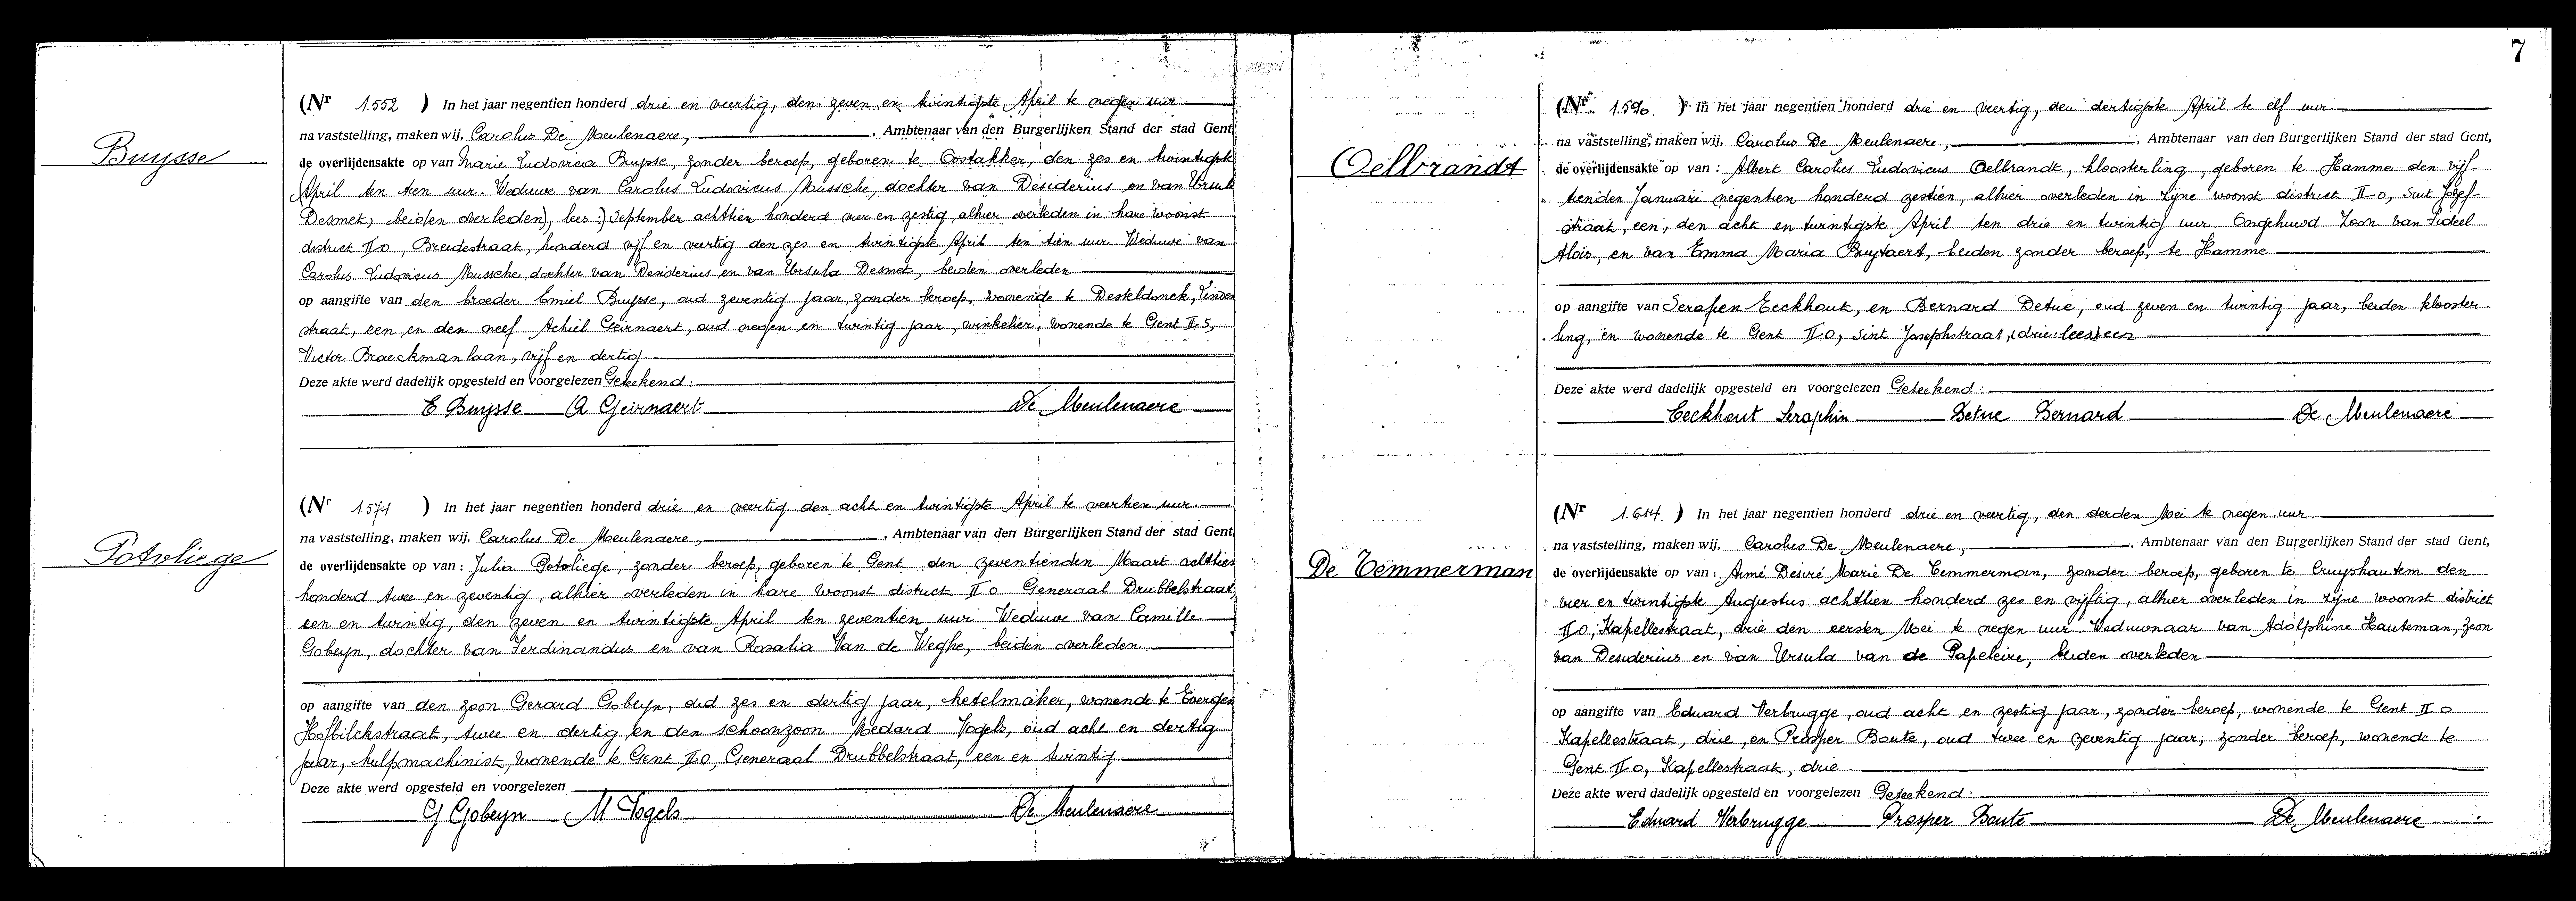 Buysse
(Nr 1.552 ) In het jaar negentien honderd drie en veertig, den zeven en twintigste April te negen uur
na vaststelling, maken wij, Carolus De Meulenaere, , Ambtenaar van den Burgerlijken Stand der stad Gent,
de overlijdensakte op van Marie Ludovica Buysse, zonder beroep, geboren te Oostakker, den zes en twintigste
(April ten tien uur. Weduwe van Carolus Ludovicus Mussche, dochter van Desiderius en van Ursula
Desmet, beiden overleden), lees:) September achttien honderd vier en zestig, alhier overleden in hare woonst
district II O, Breedestraat, honderd vijf en veertig den zes en twintigste April ten tien uur. Weduwe van
Carolus Ludovicus Mussche, dochter van Desiderius en van Ursula Desmet, beiden overleden
op aangifte van den broeder Emiel Buysse, oud zeventig jaar, zonder beroep, wonende te Desteldonck, Linden
straat, een en den neef Achiel Geirnaert, oud negen en twintig jaar, winkelier, wonende te Gent II S,
Victor Braeckmanlaan, vijf en dertig
Deze akte werd dadelijk opgesteld en voorgelezen Geteekend:
E Buysse A Geirnaert De Meulenaere
Potvliege
(Nr 1.574 ) In het jaar negentien honderd drie en veertig den acht en twintigste April te veertien uur
na vaststelling, maken wij, Carolus De Meulenaere, , Ambtenaar van den Burgerlijken Stand der stad Gent,
de overlijdensakte op van : Julia Potvliege, zonder beroep, geboren te Gent den zeventienden Maart achttien
honderd twee en zeventig, alhier overleden in hare woonst district II O Generaal Drubbelstraat,
een en twintig, den zeven en twintigste April ten zeventien uur Weduwe van Camille
Gobeyn, dochter van Ferdinandus en van Rosalia Van de Weghe, beiden overleden
op aangifte van den zoon Gerard Gobeyn, oud zes en dertig jaar, ketelmaker, wonende te Evergem
Hofbilckstraat, twee en dertig en den schoonzoon Medard Vogels, oud acht en dertig
jaar, hulpmachinist, wonende te Gent II O, Generaal Drubbelstraat, een en twintig
Deze akte werd opgesteld en voorgelezen
G Gobeyn M Vogels De Meulenaere
7
Oelbrandt
(Nr 1.590. ) In het jaar negentien honderd drie en veertig, den dertigste April te elf uur
na vaststelling, maken wij, Carolus De Meulenaere, , Ambtenaar van den Burgerlijken Stand der stad Gent,
de overlijdensakte op van : Albert Carolus Ludovicus Oelbrandt, kloosterling, geboren te Hamme den vijf-
tienden Januarii negentien honderd zestien, alhier overleden in zijne woonst district II O, Sint Jozef-
straat, een, den acht en twintigste April ten drie en twintig uur. Ongehuwd Zoon van Fideel
Alois, en van Emma Maria Buytaert, beiden zonder beroep, te Hamme
op aangifte van Serafien Eeckhout, en Bernard Detue, oud zeven en twintig jaar, beiden klooster-
ling, en wonende te Gent II O, Sint Josephstraat, (drie: lees) een
Deze akte werd dadelijk opgesteld en voorgelezen Geteekend:
Eeckhout Seraphin Detue Bernard De Meulenaere
De Temmerman
(Nr 1.614. ) In het jaar negentien honderd drie en veertig, den derden Mei te negen uur
na vaststelling, maken wij, Carolus De Meulenaere, , Ambtenaar van den Burgerlijken Stand der stad Gent,
de overlijdensakte op van : Aimé Desiré Marie De Temmerman, zonder beroep, geboren te Cruyshautem den
vier en twintigste Augustus achttien honderd zes en vijftig, alhier overleden in zijne woonst district
II O, Kapellestraat, drie den eersten Mei te negen uur. Weduwnaar van Adolphine Hauteman, zoon
van Desiderius en van Ursula van de Papeleire, beiden overleden
op aangifte van Eduard Verbrugge, oud acht en zestig jaar, zonder beroep, wonende te Gent II O
Kapellestraat, drie, en Prosper Boute, oud twee en zeventig jaar, zonder beroep, wonende te
Gent II O, Kapellestraat, drie
Deze akte werd dadelijk opgesteld en voorgelezen Geteekend:
Eduard Verbrugge Prosper Boute De Meulenaere